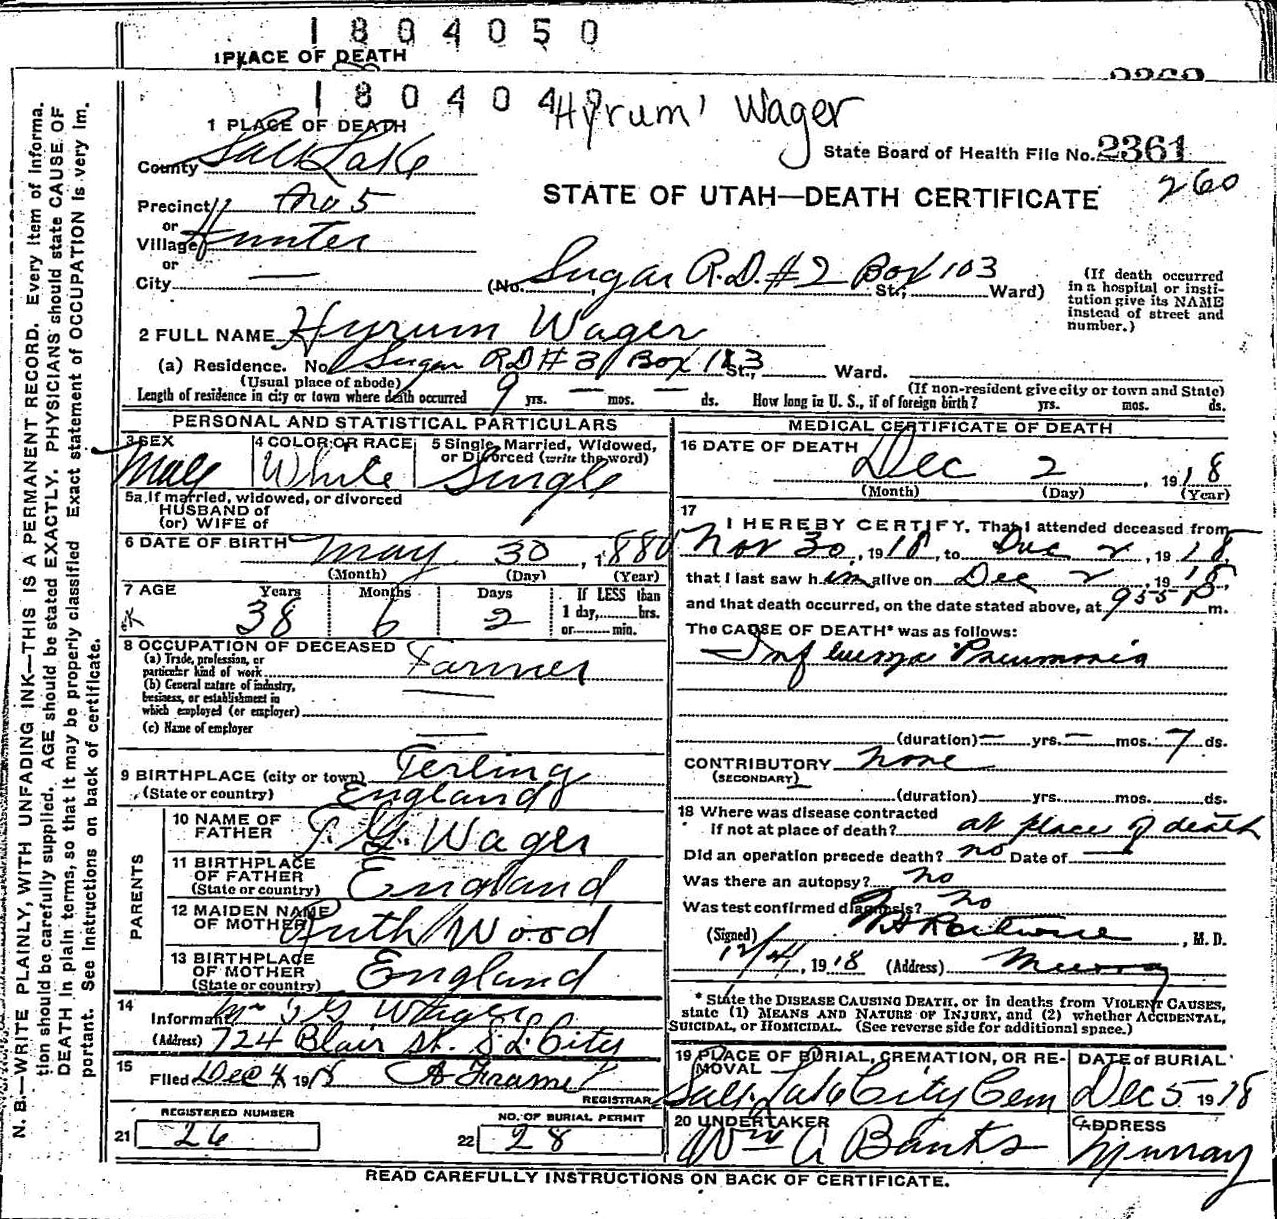 1804050
1 PLACE OF DEATH
180404
Hyrum Wager
1 PLACE OF DEATH
State Board of Health File No. 2361
260
County Salt Lake
STATE OF UTAH—DEATH CERTIFICATE
Precinct No 5
or
Village Hunter
or
City —
(No. Sugar R.D. #2 Box 103 St; Ward)
(If death occurred
in a hospital or insti-
tution give its NAME
instead of street and
number.)
2 FULL NAME Hyrum Wager
(a) Residence. No Sugar RD #3 Box 183 St; Ward.
(Usual place of abode) (If non-resident give city or town and State)
Length of residence in city or town where death occurred 9 yrs. — mos. — ds. How long in U. S., if of foreign birth? yrs. mos. ds.
PERSONAL AND STATISTICAL PARTICULARS
3 SEX Male
4 COLOR OR RACE White
5 Single, Married, Widowed,
or Divorced (write the word)
Single
5a If married, widowed, or divorced
HUSBAND of
(or) WIFE of
6 DATE OF BIRTH May 30, 1880
(Month) (Day) (Year)
7 AGE Years Months Days If LESS than
38 6 2 1 day, hrs.
or min.
8 OCCUPATION OF DECEASED
(a) Trade, profession, or
particular kind of work Farmer
(b) General nature of industry,
business, or establishment in
which employed (or employer) —
(c) Name of employer —
9 BIRTHPLACE (city or town) Terling
(State or country) England
PARENTS
10 NAME OF
FATHER T. G. Wager
11 BIRTHPLACE
OF FATHER
(State or country) England
12 MAIDEN NAME
OF MOTHER Ruth Wood
13 BIRTHPLACE
OF MOTHER
(State or country) England
14
Informant Wager
(Address) 724 Blair St. S L City
15
Filed Dec 4 1918
REGISTRAR
REGISTERED NUMBER
21 26
NO. OF BURIAL PERMIT
22 28
MEDICAL CERTIFICATE OF DEATH
16 DATE OF DEATH
Dec 2, 1918
(Month) (Day) (Year)
17
I HEREBY CERTIFY, That I attended deceased from
Nov 30, 1918, to Dec 2, 1918,
that I last saw him alive on Dec 2, 1918
and that death occurred, on the date stated above, at 9 55 P m.
The CAUSE OF DEATH* was as follows:
Influenza Pneumonia
(duration) — yrs. — mos. 7 ds.
CONTRIBUTORY none
(SECONDARY)
(duration) yrs. mos. ds.
18 Where was disease contracted
if not at place of death? at place of death
Did an operation precede death? no Date of —
Was there an autopsy? no
Was test confirmed diagnosis? no
(Signed) , M. D.
12/4, 1918 (Address) Murray
* State the DISEASE CAUSING DEATH, or in deaths from VIOLENT CAUSES,
state (1) MEANS AND NATURE OF INJURY, and (2) whether ACCIDENTAL,
SUICIDAL, or HOMICIDAL. (See reverse side for additional space.)
19 PLACE OF BURIAL, CREMATION, OR RE-
MOVAL
Salt Lake City Cem
DATE of BURIAL
Dec 5 1918
20 UNDERTAKER
Wm A Banks
ADDRESS
Murray
READ CAREFULLY INSTRUCTIONS ON BACK OF CERTIFICATE.
N. B.—WRITE PLAINLY, WITH UNFADING INK—THIS IS A PERMANENT RECORD. Every item of informa-
tion should be carefully supplied. AGE should be stated EXACTLY. PHYSICIANS should state CAUSE OF
DEATH in plain terms, so that it may be properly classified Exact statement of OCCUPATION is very im-
portant. See instructions on back of certificate.